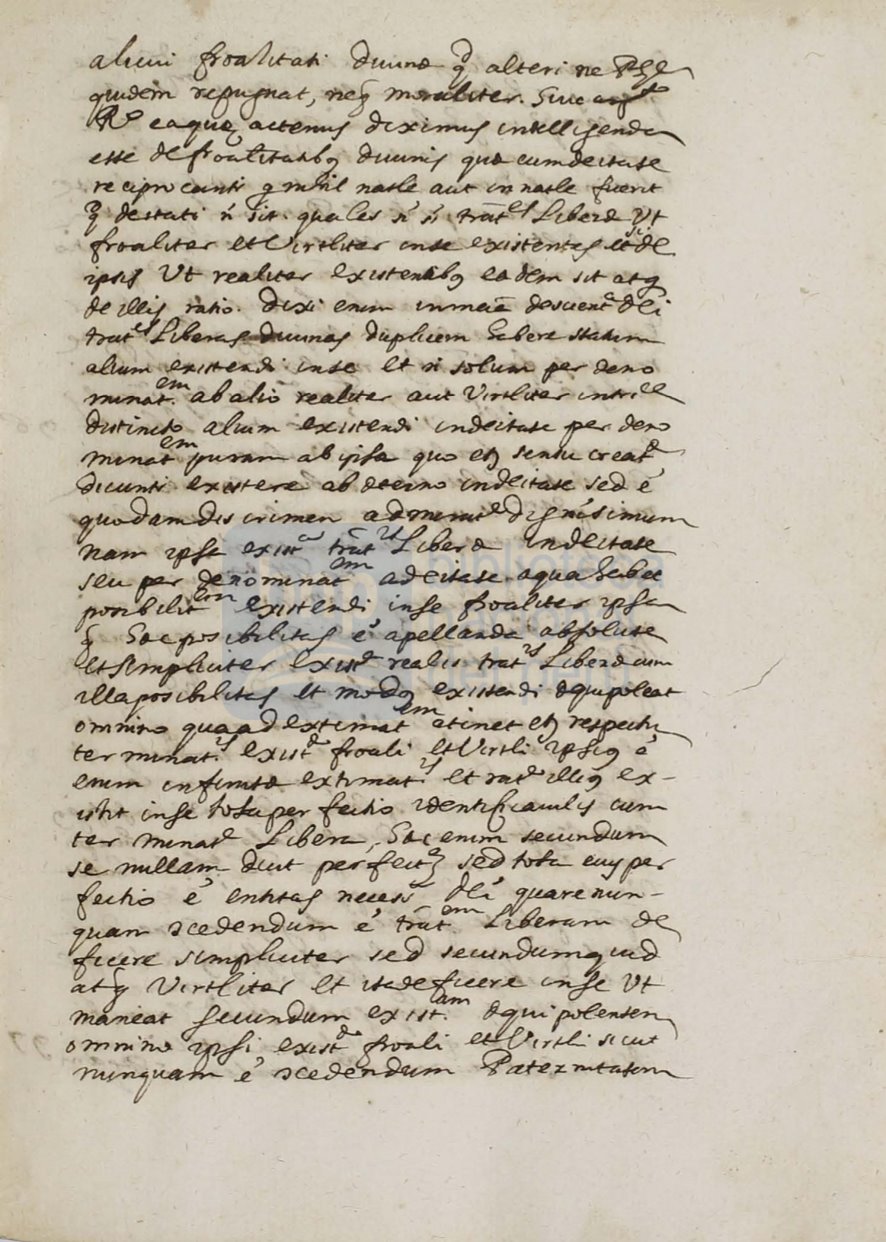 alicui froalitati divinæ q alteri ne
quidem repugnat, neq moraliter. Sive
Rº eaque actenus diximus intelligenda
esse de froalitatibq divinis quæ cum deitate
reciprocanti q nihil natle aut innatle fuerit
q deitati ñ sit. quales ñ st trãt es Liberæ Vt
froaliter et Virtliter inse existentes et de
ipsis Vt realiter existentibq eadem sit atq
de illis ratio. dixi enim inmeiã descient dei
trat es Liberas divinas duplicem habere statum
alium existendi inse et ñ solum per deno
minat em ab alio realiter aut Virtliter intrce
distincto alium existendi indeitate per deno
minat em puram ab ipsa quo et sensu creat
dicunti existere ab æterno indeitate sed é
quodam discrimen admirat e dignisimum
nam ipse exist a trãt is Liberæ indeitate
seu per denominat em adeitate aqua habet
posibilit em existendi inse froaliter ipsa
q hæc posibilitas é apellanda absolute
et simpliciter exist realis trat is Liberæ cum
illa posibilitas et modq existendi æquipoleat
omnino quaad extimat em atinet et respectu
terminat is exist froali et Virtli ipsiq é
enim infinitæ extimat is et rat e illiq ex-
istit inse tota perfectio identificavilis cum
terminat e Libera, hæc enim secundum
se nullam dicit perfect sed tota eiq per
fectio é entitas necess a dei quare nun-
quam scedendum é trãt em Liberam de
ficere simpliciter sed secundumquid
atq Virtliter et ita deficere inse Vt
maneat secundum exist am æquipolentem
omnino ipsi exist froali et Virtli sicut
nunquam é scedendum Paternitatem